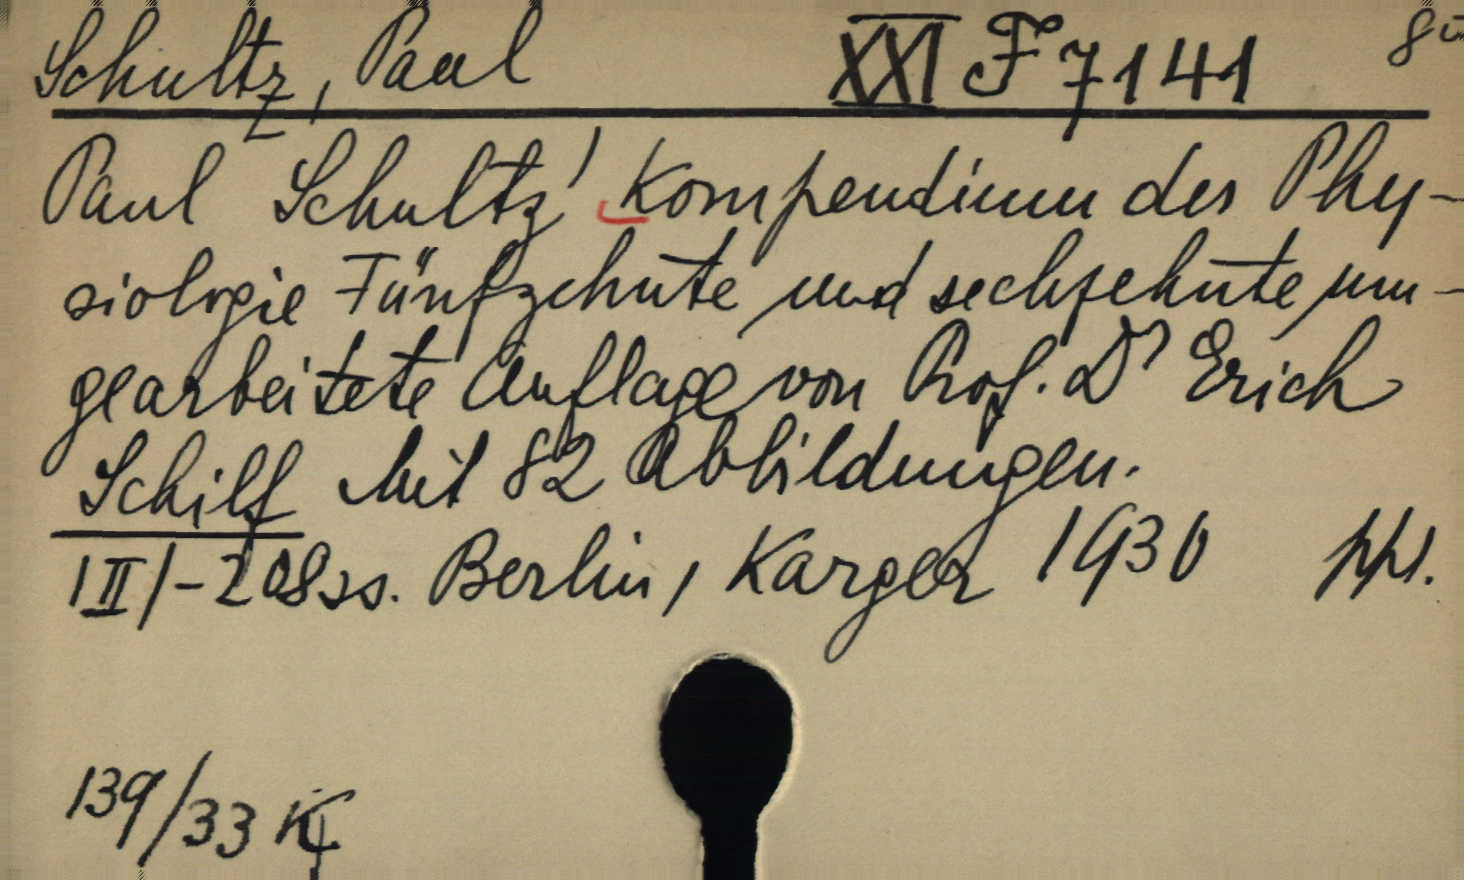 Schultz, Paul XXI F 7141 8ú
Paul Schultz' Kompendium der Phy-
siologie Fünfzehnte und sechzehnte um-
gearbeitete Auflage von Prof. Dr Erich
Schilf Mit 82 Abbildungen.
1 II 1-208 ss. Berlin, Karger 1930 ppl.
139/33